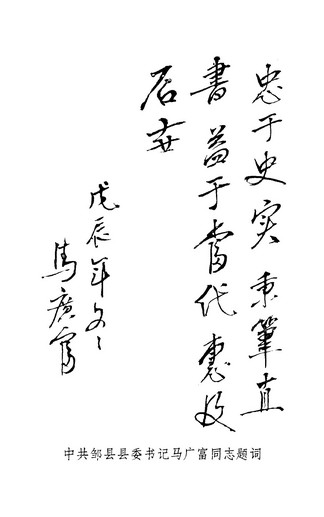 忠于史实秉筆直
書益于當代惠及
后世
戊辰年冬
馬廣富
中共邹县县委书记马广富同志题词